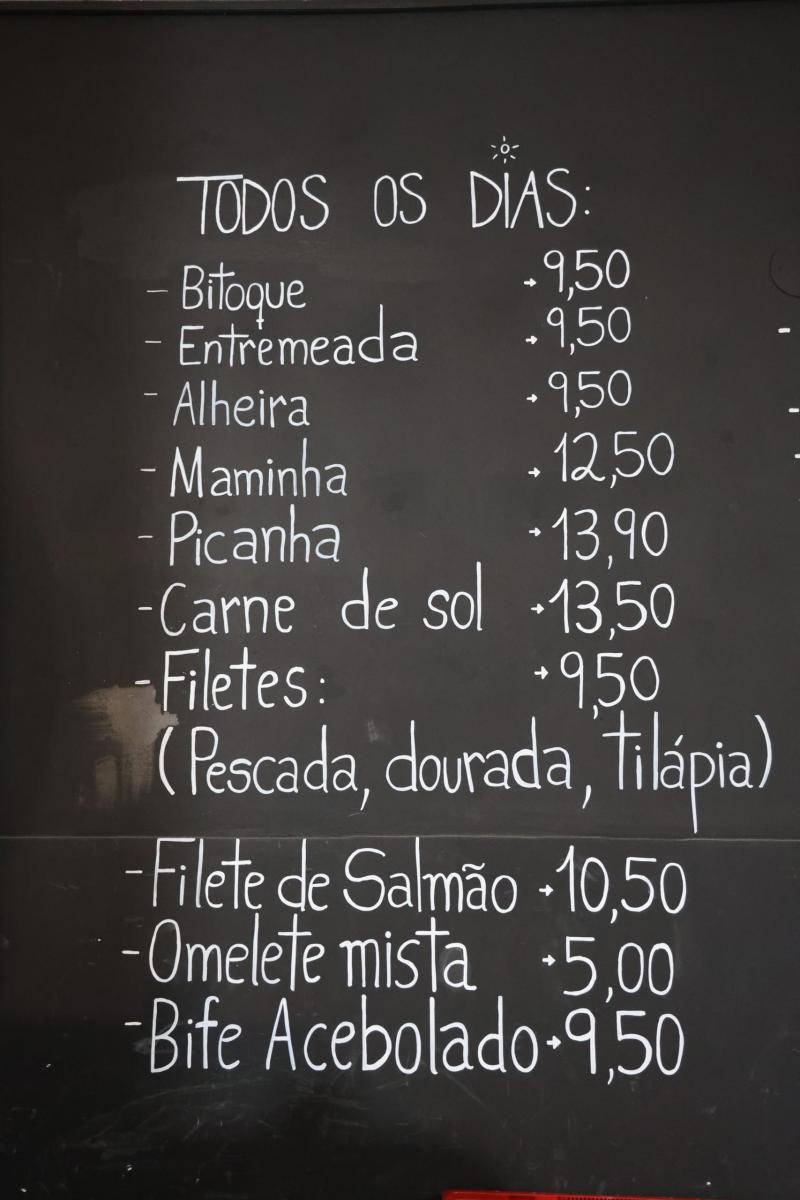 TODOS OS DIAS:
- Bitoque → 9,50
- Entremeada → 9,50
- Alheira → 9,50
- Maminha → 12,50
- Picanha → 13,90
- Carne de sol → 13,50
- Filetes: → 9,50
(Pescada, dourada, tilápia)
- Filete de Salmão → 10,50
- Omelete mista → 5,00
- Bife Acebolado → 9,50